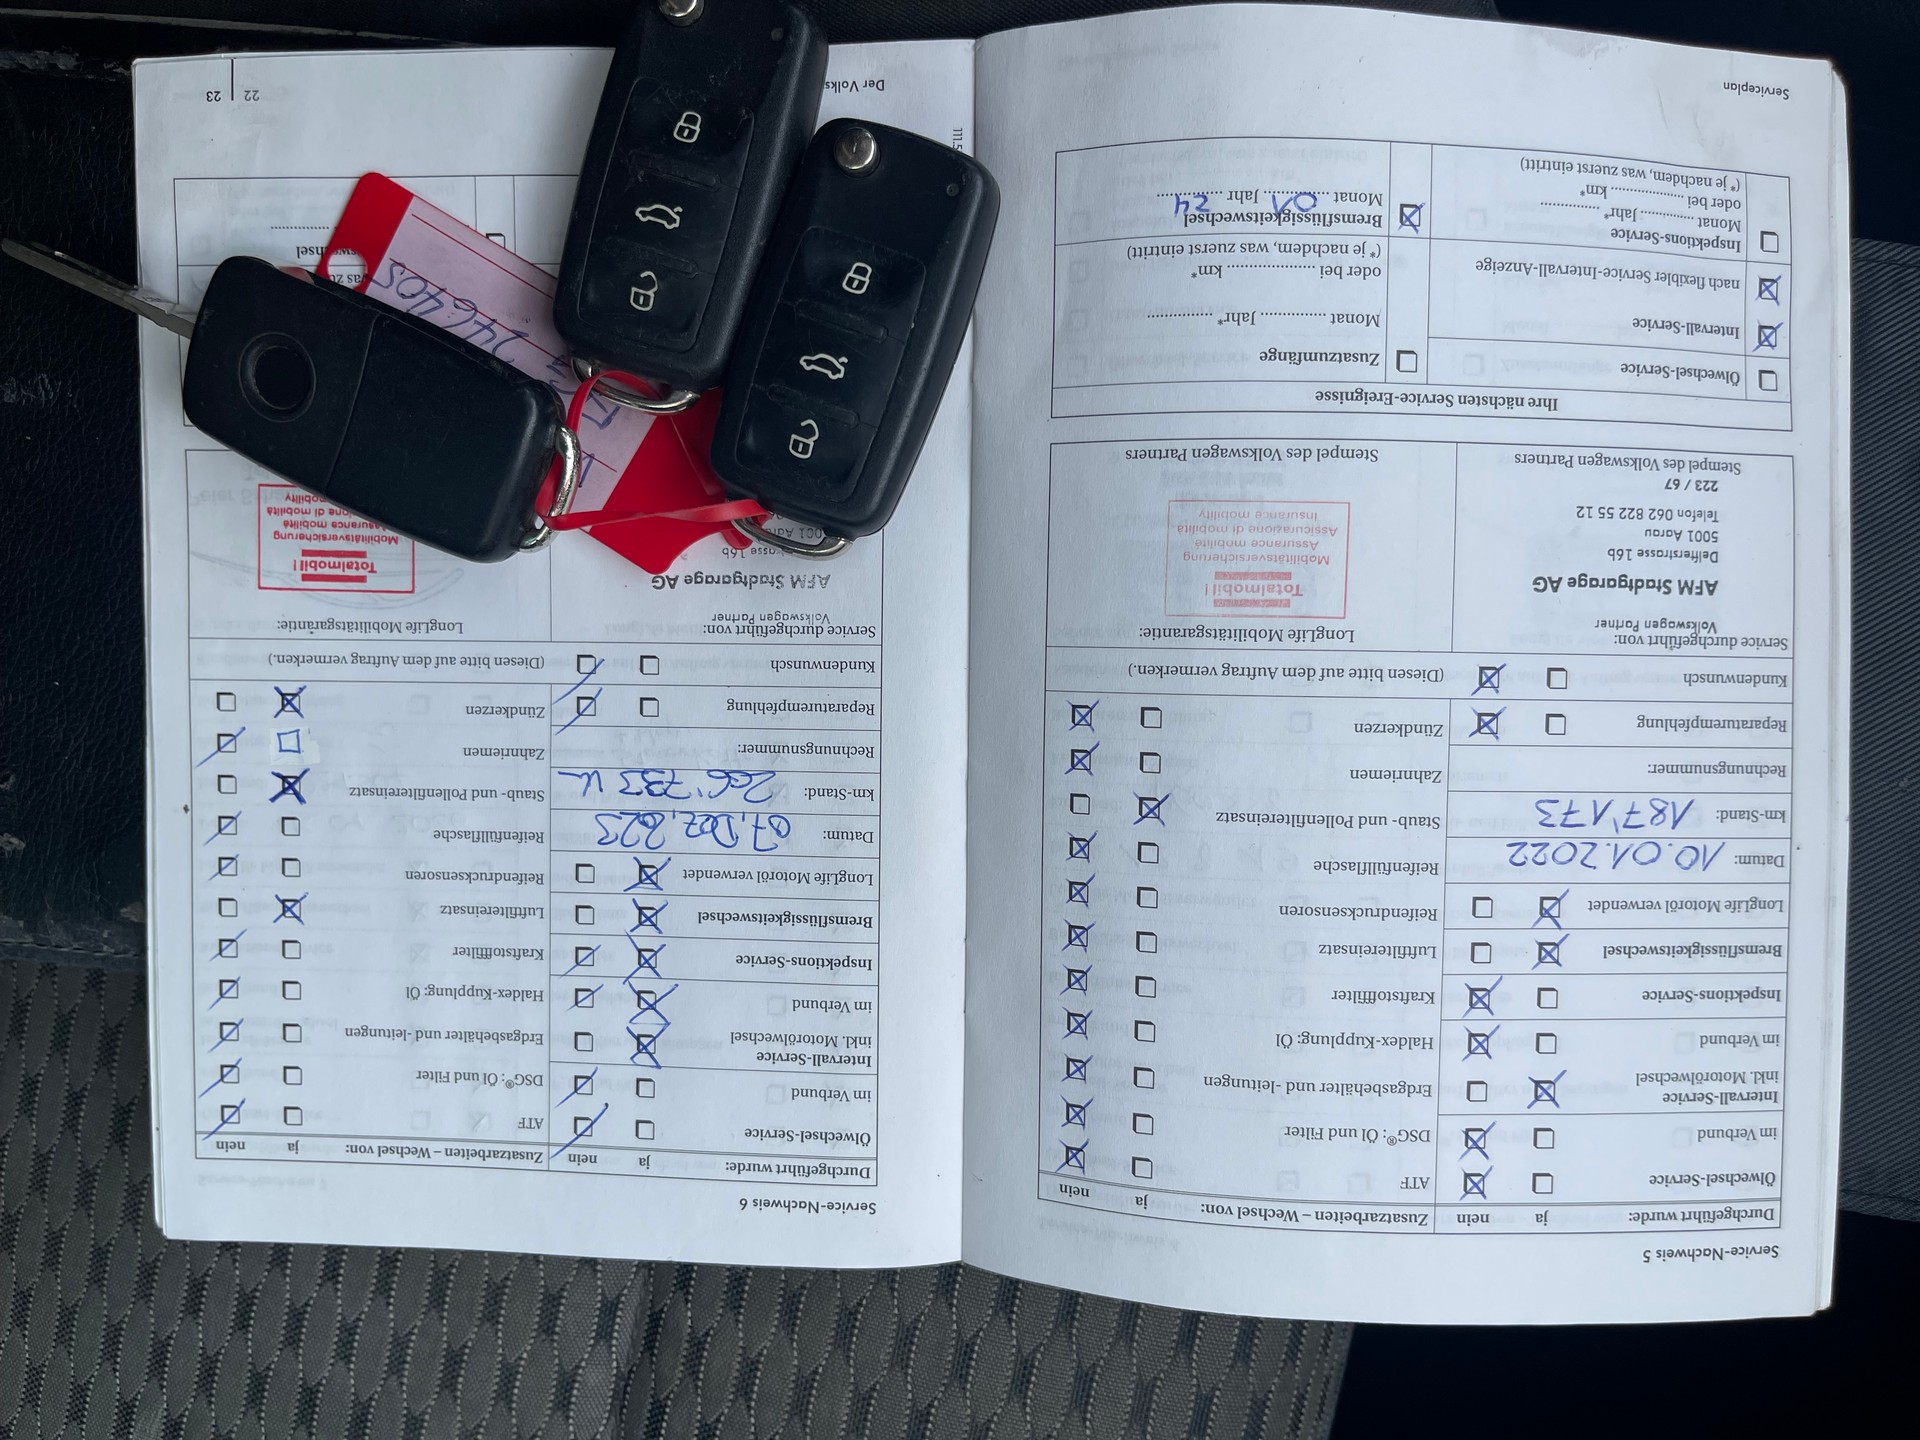 Service-Nachweis 5
Durchgeführt wurde: ja nein
Ölwechsel-Service
im Verbund
Intervall-Service
inkl. Motorölwechsel
im Verbund
Inspektions-Service
Bremsflüssigkeitswechsel
LongLife Motoröl verwendet
Datum: 10.01.2022
km-Stand: 187'173
Rechnungsnummer:
Reparaturempfehlung
Kundenwunsch (Diesen bitte auf dem Auftrag vermerken.)
Zusatzarbeiten – Wechsel von: ja nein
ATF
DSG®: Öl und Filter
Erdgasbehälter und -leitungen
Haldex-Kupplung: Öl
Kraftstofffilter
Luftfiltereinsatz
Reifendrucksensoren
Reifenfüllflasche
Staub- und Pollenfiltereinsatz
Zahnriemen
Zündkerzen
Service durchgeführt von:
Volkswagen Partner
AFM Stadtgarage AG
Delfterstrasse 16b
5001 Aarau
Telefon 062 822 55 12
223 / 67
Stempel des Volkswagen Partners
LongLife Mobilitätsgarantie:
Totalmobil!
Mobilitätsversicherung
Assurance mobilité
Assicurazione di mobilità
Insurance mobility
Stempel des Volkswagen Partners
Ihre nächsten Service-Ereignisse
Ölwechsel-Service
Intervall-Service
nach flexibler Service-Intervall-Anzeige
Inspektions-Service
Monat ............ Jahr* ............
oder bei ............ km*
(*je nachdem, was zuerst eintritt)
Zusatzumfänge
Monat ............ Jahr* ............
oder bei ............ km*
(*je nachdem, was zuerst eintritt)
Bremsflüssigkeitswechsel
Monat 01 Jahr 24
Serviceplan
Service-Nachweis 6
Durchgeführt wurde: ja nein
Ölwechsel-Service
im Verbund
Intervall-Service
inkl. Motorölwechsel
im Verbund
Inspektions-Service
Bremsflüssigkeitswechsel
LongLife Motoröl verwendet
Datum: 07. Dez. 2023
km-Stand: 206'733
Rechnungsnummer:
Reparaturempfehlung
Kundenwunsch (Diesen bitte auf dem Auftrag vermerken.)
Zusatzarbeiten – Wechsel von: ja nein
ATF
DSG®: Öl und Filter
Erdgasbehälter und -leitungen
Haldex-Kupplung: Öl
Kraftstofffilter
Luftfiltereinsatz
Reifendrucksensoren
Reifenfüllflasche
Staub- und Pollenfiltereinsatz
Zahnriemen
Zündkerzen
Service durchgeführt von:
Volkswagen Partner
AFM Stadtgarage AG
16b
LongLife Mobilitätsgarantie:
Totalmobil!
Mobilitätsversicherung
Assurance mobilité
mobility
246405
Der Volks
22 | 23